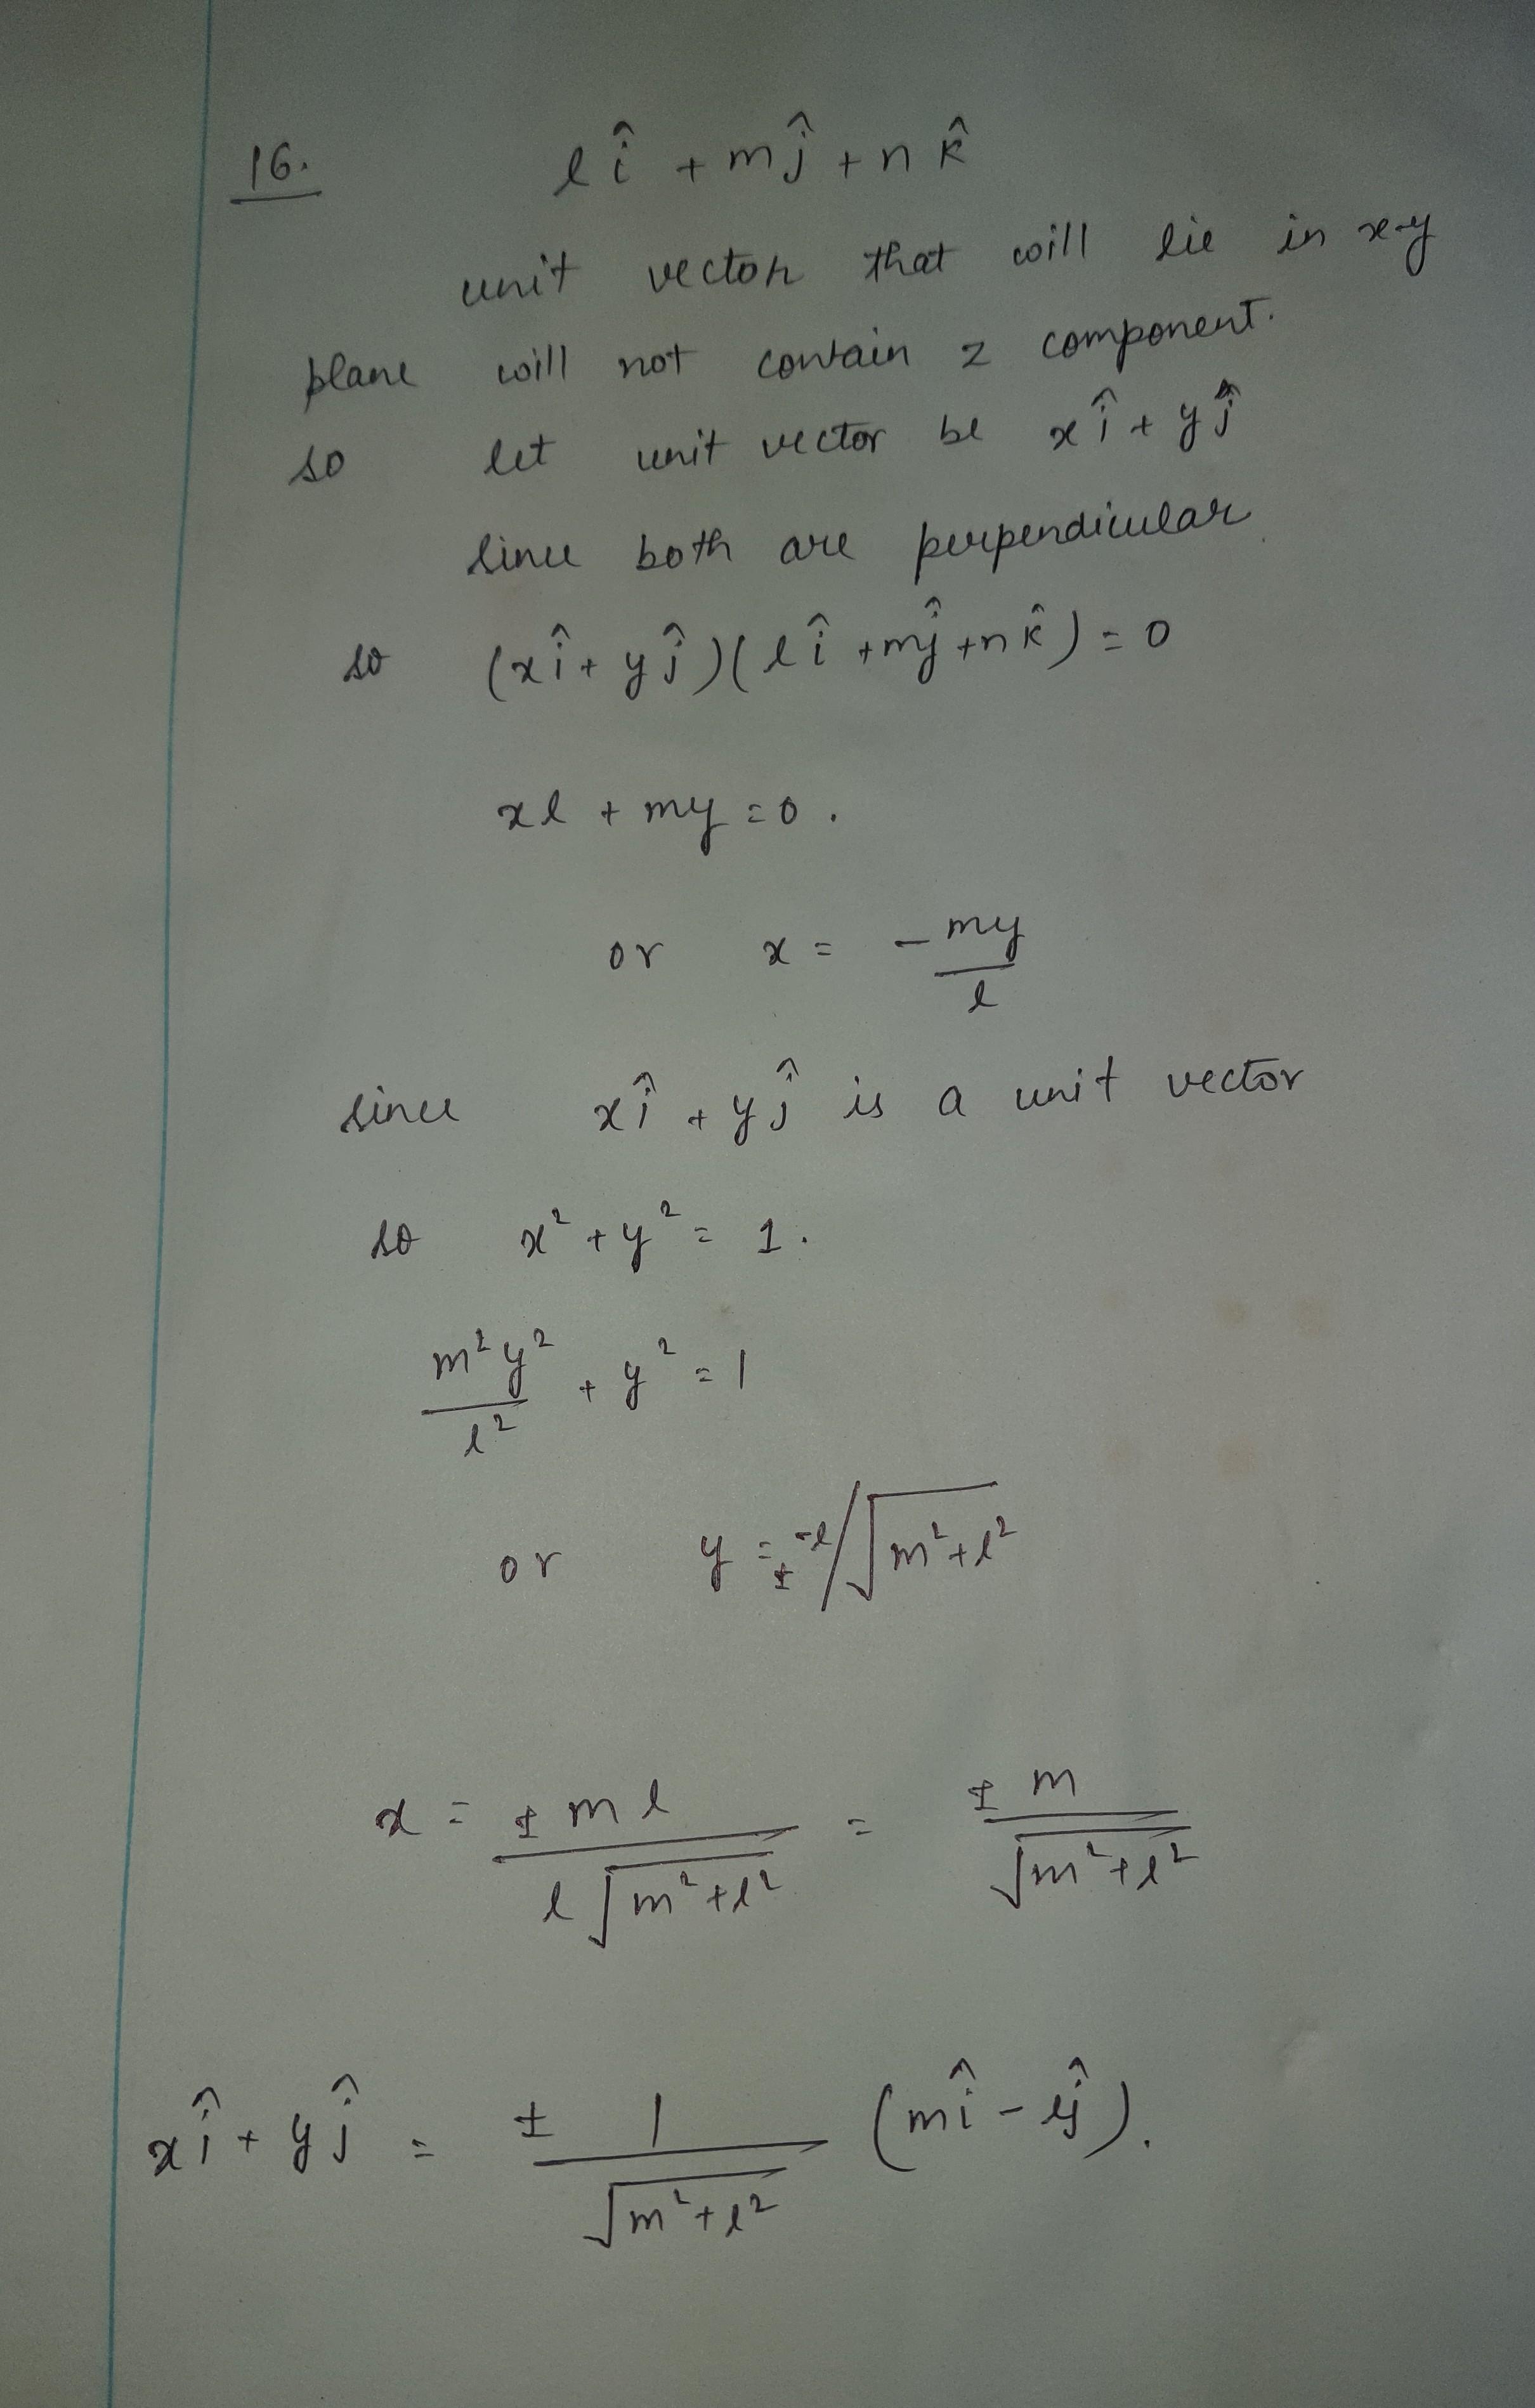 16. l î + m ĵ + n k̂
unit vector that will lie in x-y
plane will not contain z component.
so let unit vector be x î + y ĵ
since both are perpendicular
so (x î + y ĵ)(l î + m ĵ + n k̂) = 0
xl + my = 0.
or x = -my/l
since x î + y ĵ is a unit vector
so x² + y² = 1.
m²y²/l² + y² = 1
or y = ± -l/√(m²+l²)
x = ± ml/(l√(m²+l²)) = ± m/√(m²+l²)
x î + y ĵ = ± 1/√(m²+l²) (m î - l ĵ).